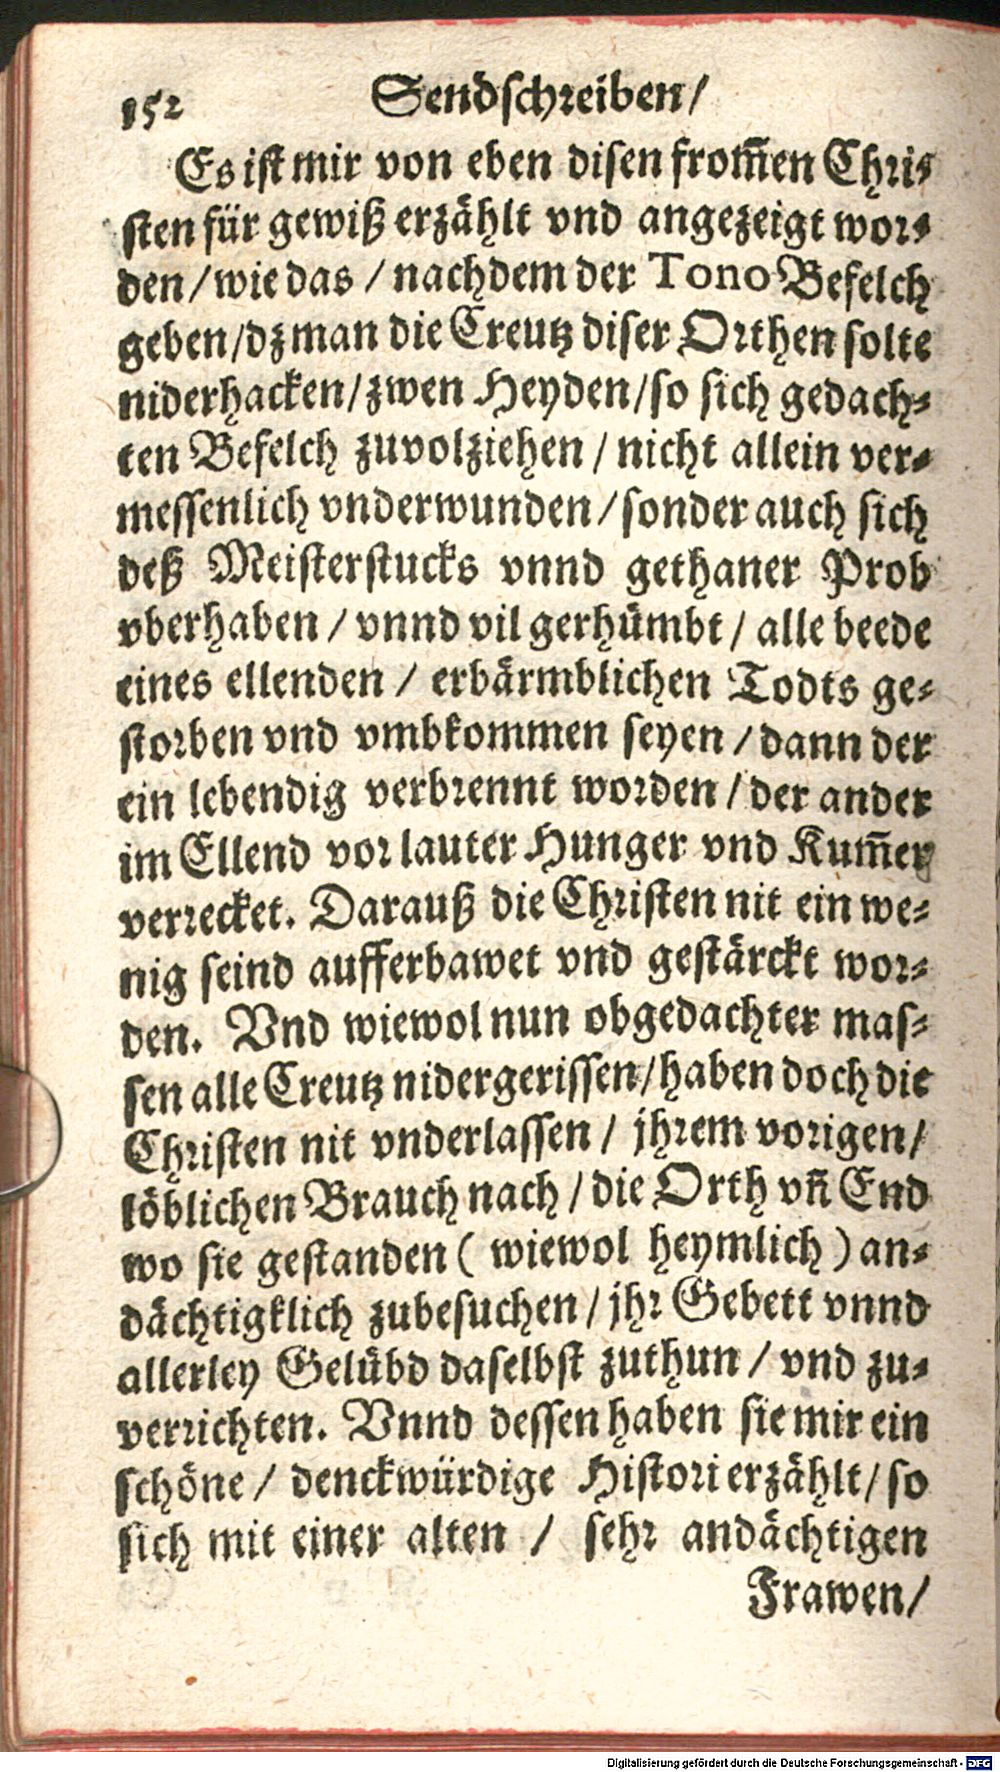 152 Sendschreiben/
Es ist mir von eben disen from̄en Chri⸗
sten für gewiß erzählt vnd angezeigt wor⸗
den/wie das/nachdem der Tono Befelch
geben/dz man die Creutz diser Orthen solte
niderhacken/zwen Heyden/so sich gedach⸗
ten Befelch zuvolziehen/nicht allein ver⸗
messenlich vnderwunden/sonder auch sich
deß Meisterstucks vnnd gethaner Prob
vberhaben/vnnd vil gerhümbt/alle beede
eines ellenden/erbärmblichen Todts ge⸗
storben vnd vmbkommen seyen/dann der
ein lebendig verbrennt worden/der ander
im Ellend vor lauter Hunger vnd Kum̄er
verrecket. Darauß die Christen nit ein we⸗
nig seind aufferbawet vnd gestärckt wor⸗
den. Vnd wiewol nun obgedachter mas⸗
sen alle Creutz nidergerissen/haben doch die
Christen nit vnderlassen/jhrem vorigen/
löblichen Brauch nach/die Orth vñ End
wo sie gestanden (wiewol heymlich) an⸗
dächtigklich zubesuchen/jhr Gebett vnnd
allerley Gelübd daselbst zuthun/vnd zu⸗
verrichten. Vnnd dessen haben sie mir ein
schöne/denckwürdige Histori erzählt/so
sich mit einer alten/sehr andächtigen
Frawen/
Digitalisierung gefördert durch die Deutsche Forschungsgemeinschaft - DFG